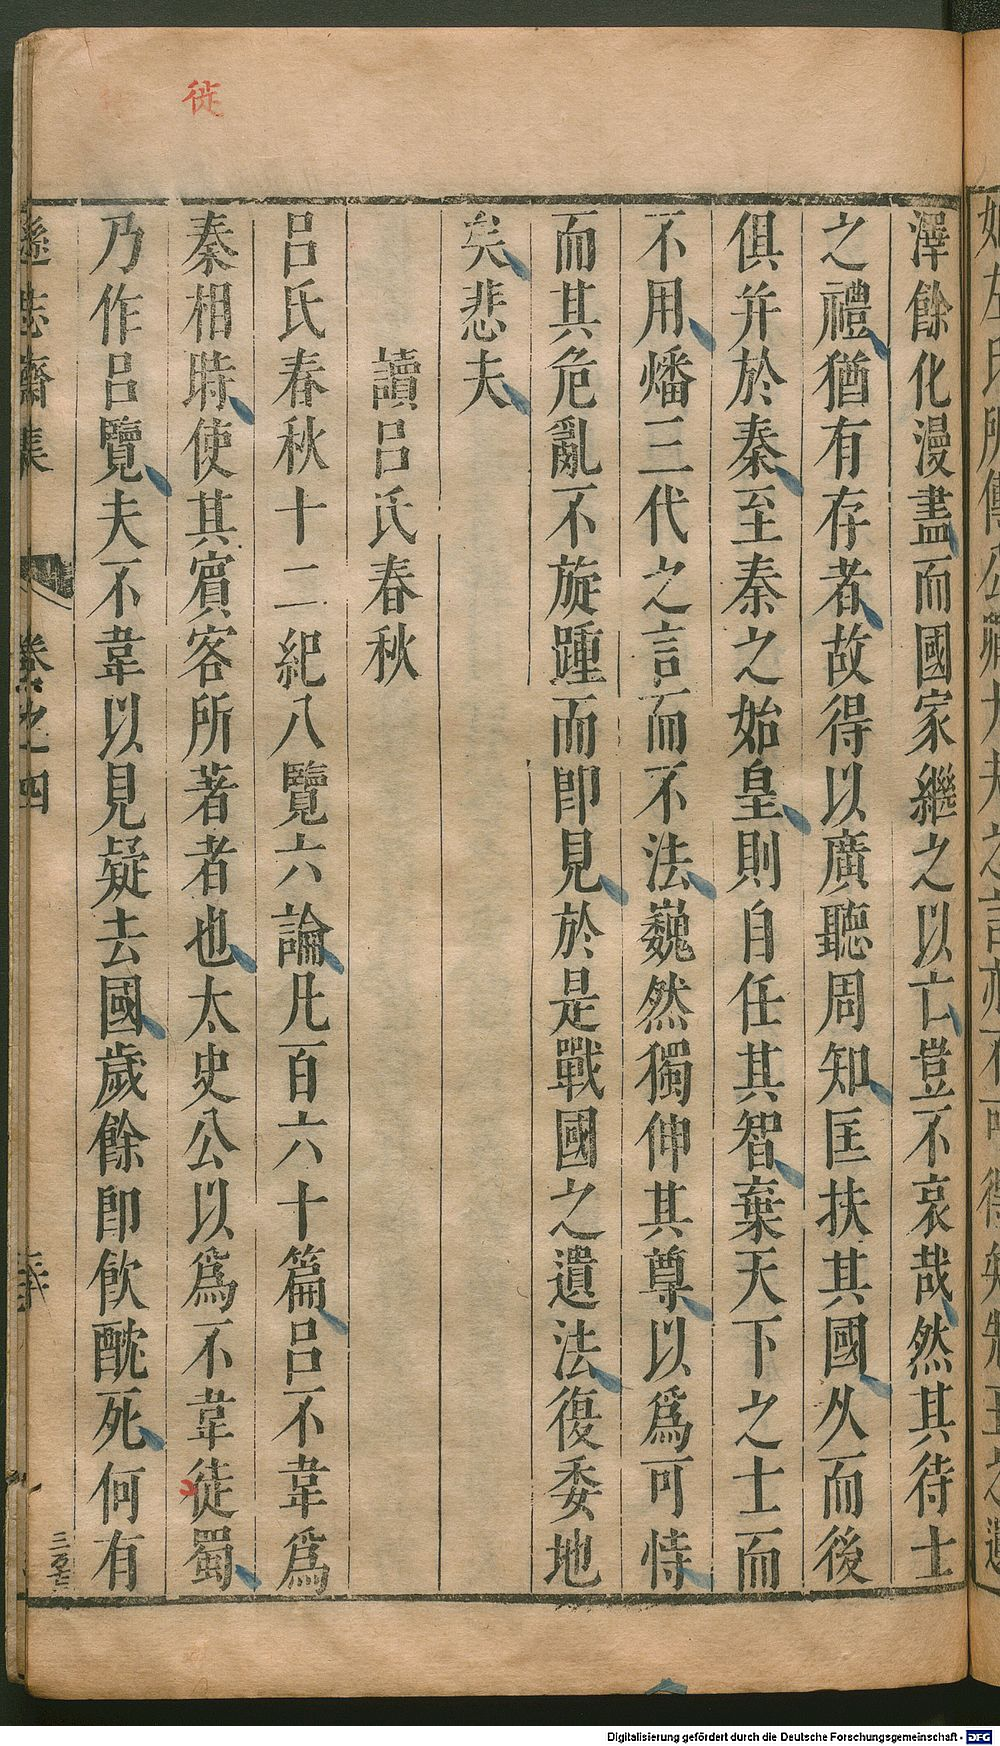 澤餘化漫盡而國家繼之以亡豈不哀哉然其待士
之禮猶有存者故得以廣聽周知匡扶其國久而後
俱并於秦至秦之始皇則自任其智棄天下之士而
不用燔三代之言而不法巍然獨伸其尊以爲可恃
而其危亂不旋踵而即見於是戰國之遺法復委地
矣悲夫
讀呂氏春秋
呂氏春秋十二紀八覽六論凡百六十篇呂不韋爲
秦相時使其賓客所著者也太史公以爲不韋徒蜀
乃作呂覽夫不韋以見疑去國歲餘即飲酖死何有
遜志齋集
卷之四
徙
Digitalisierung gefördert durch die Deutsche Forschungsgemeinschaft - DFG